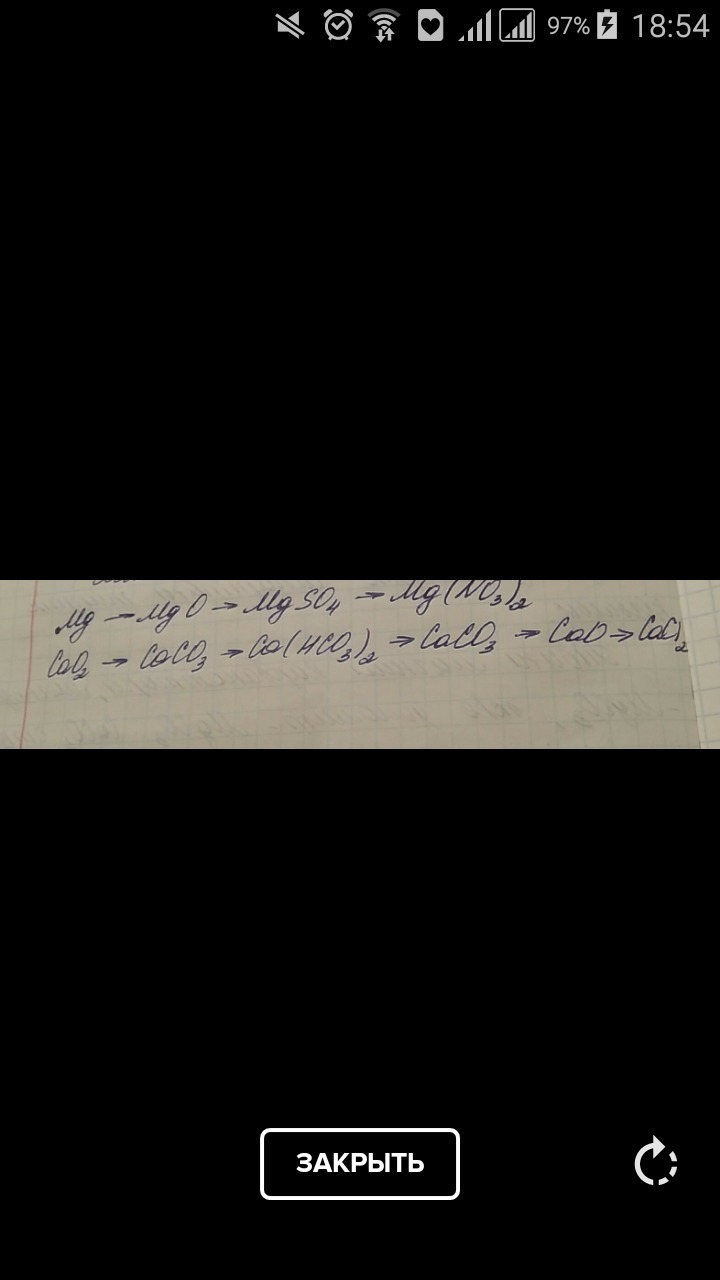 97% 18:54
Mg → MgO → MgSO₄ → Mg(NO₃)₂
CaO₂ → CaCO₃ → Ca(HCO₃)₂ → CaCO₃ → CaO → CaCl₂
ЗАКРЫТЬ